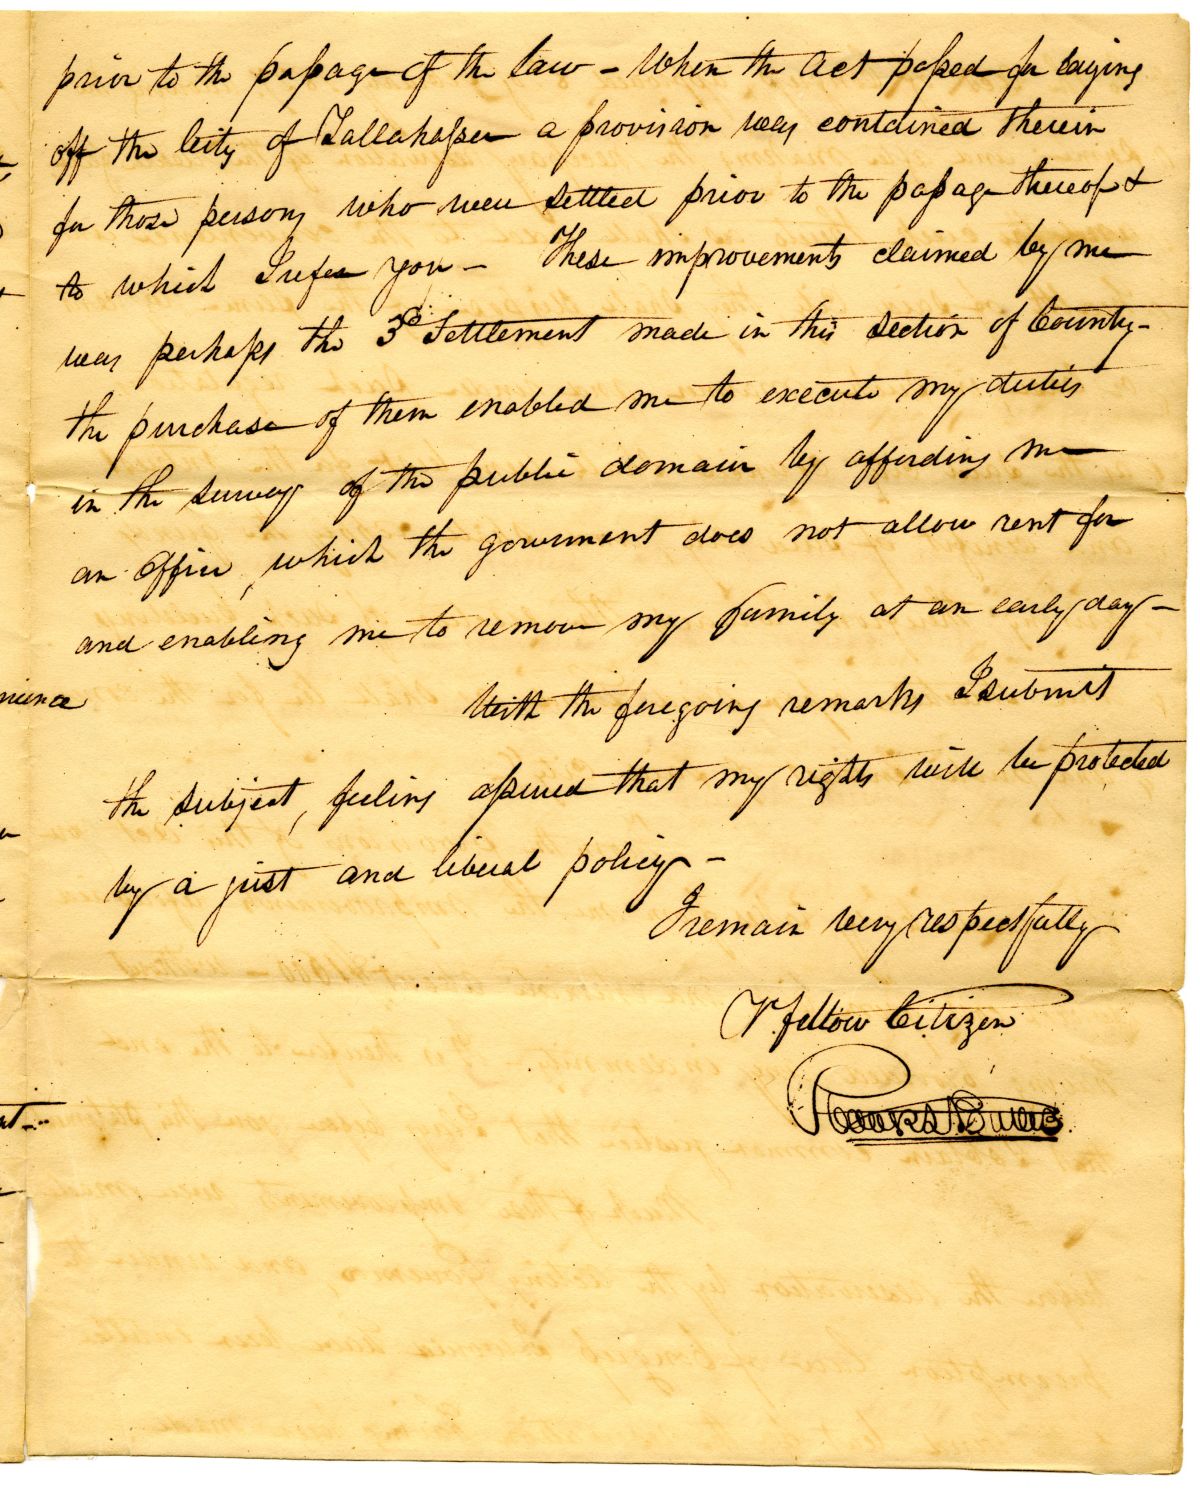 prior to the passage of the law – When the act passed for laying
off the City of Tallahassee a provision was contained therein
for those persons who were settled prior to the passage thereof &
to which I refer you – These improvements claimed by me
was perhaps the 3d Settlement made in this section of County –
the purchase of them enabled me to execute my duties
in the survey of the public domain by affording me
an office, which the government does not allow rent for
and enabling me to remove my family at an early day –
With the foregoing remarks I submit
the subject, feeling assured that my rights will be protected
by a just and liberal policy –
I remain very respectfully
Yr fellow Citizen